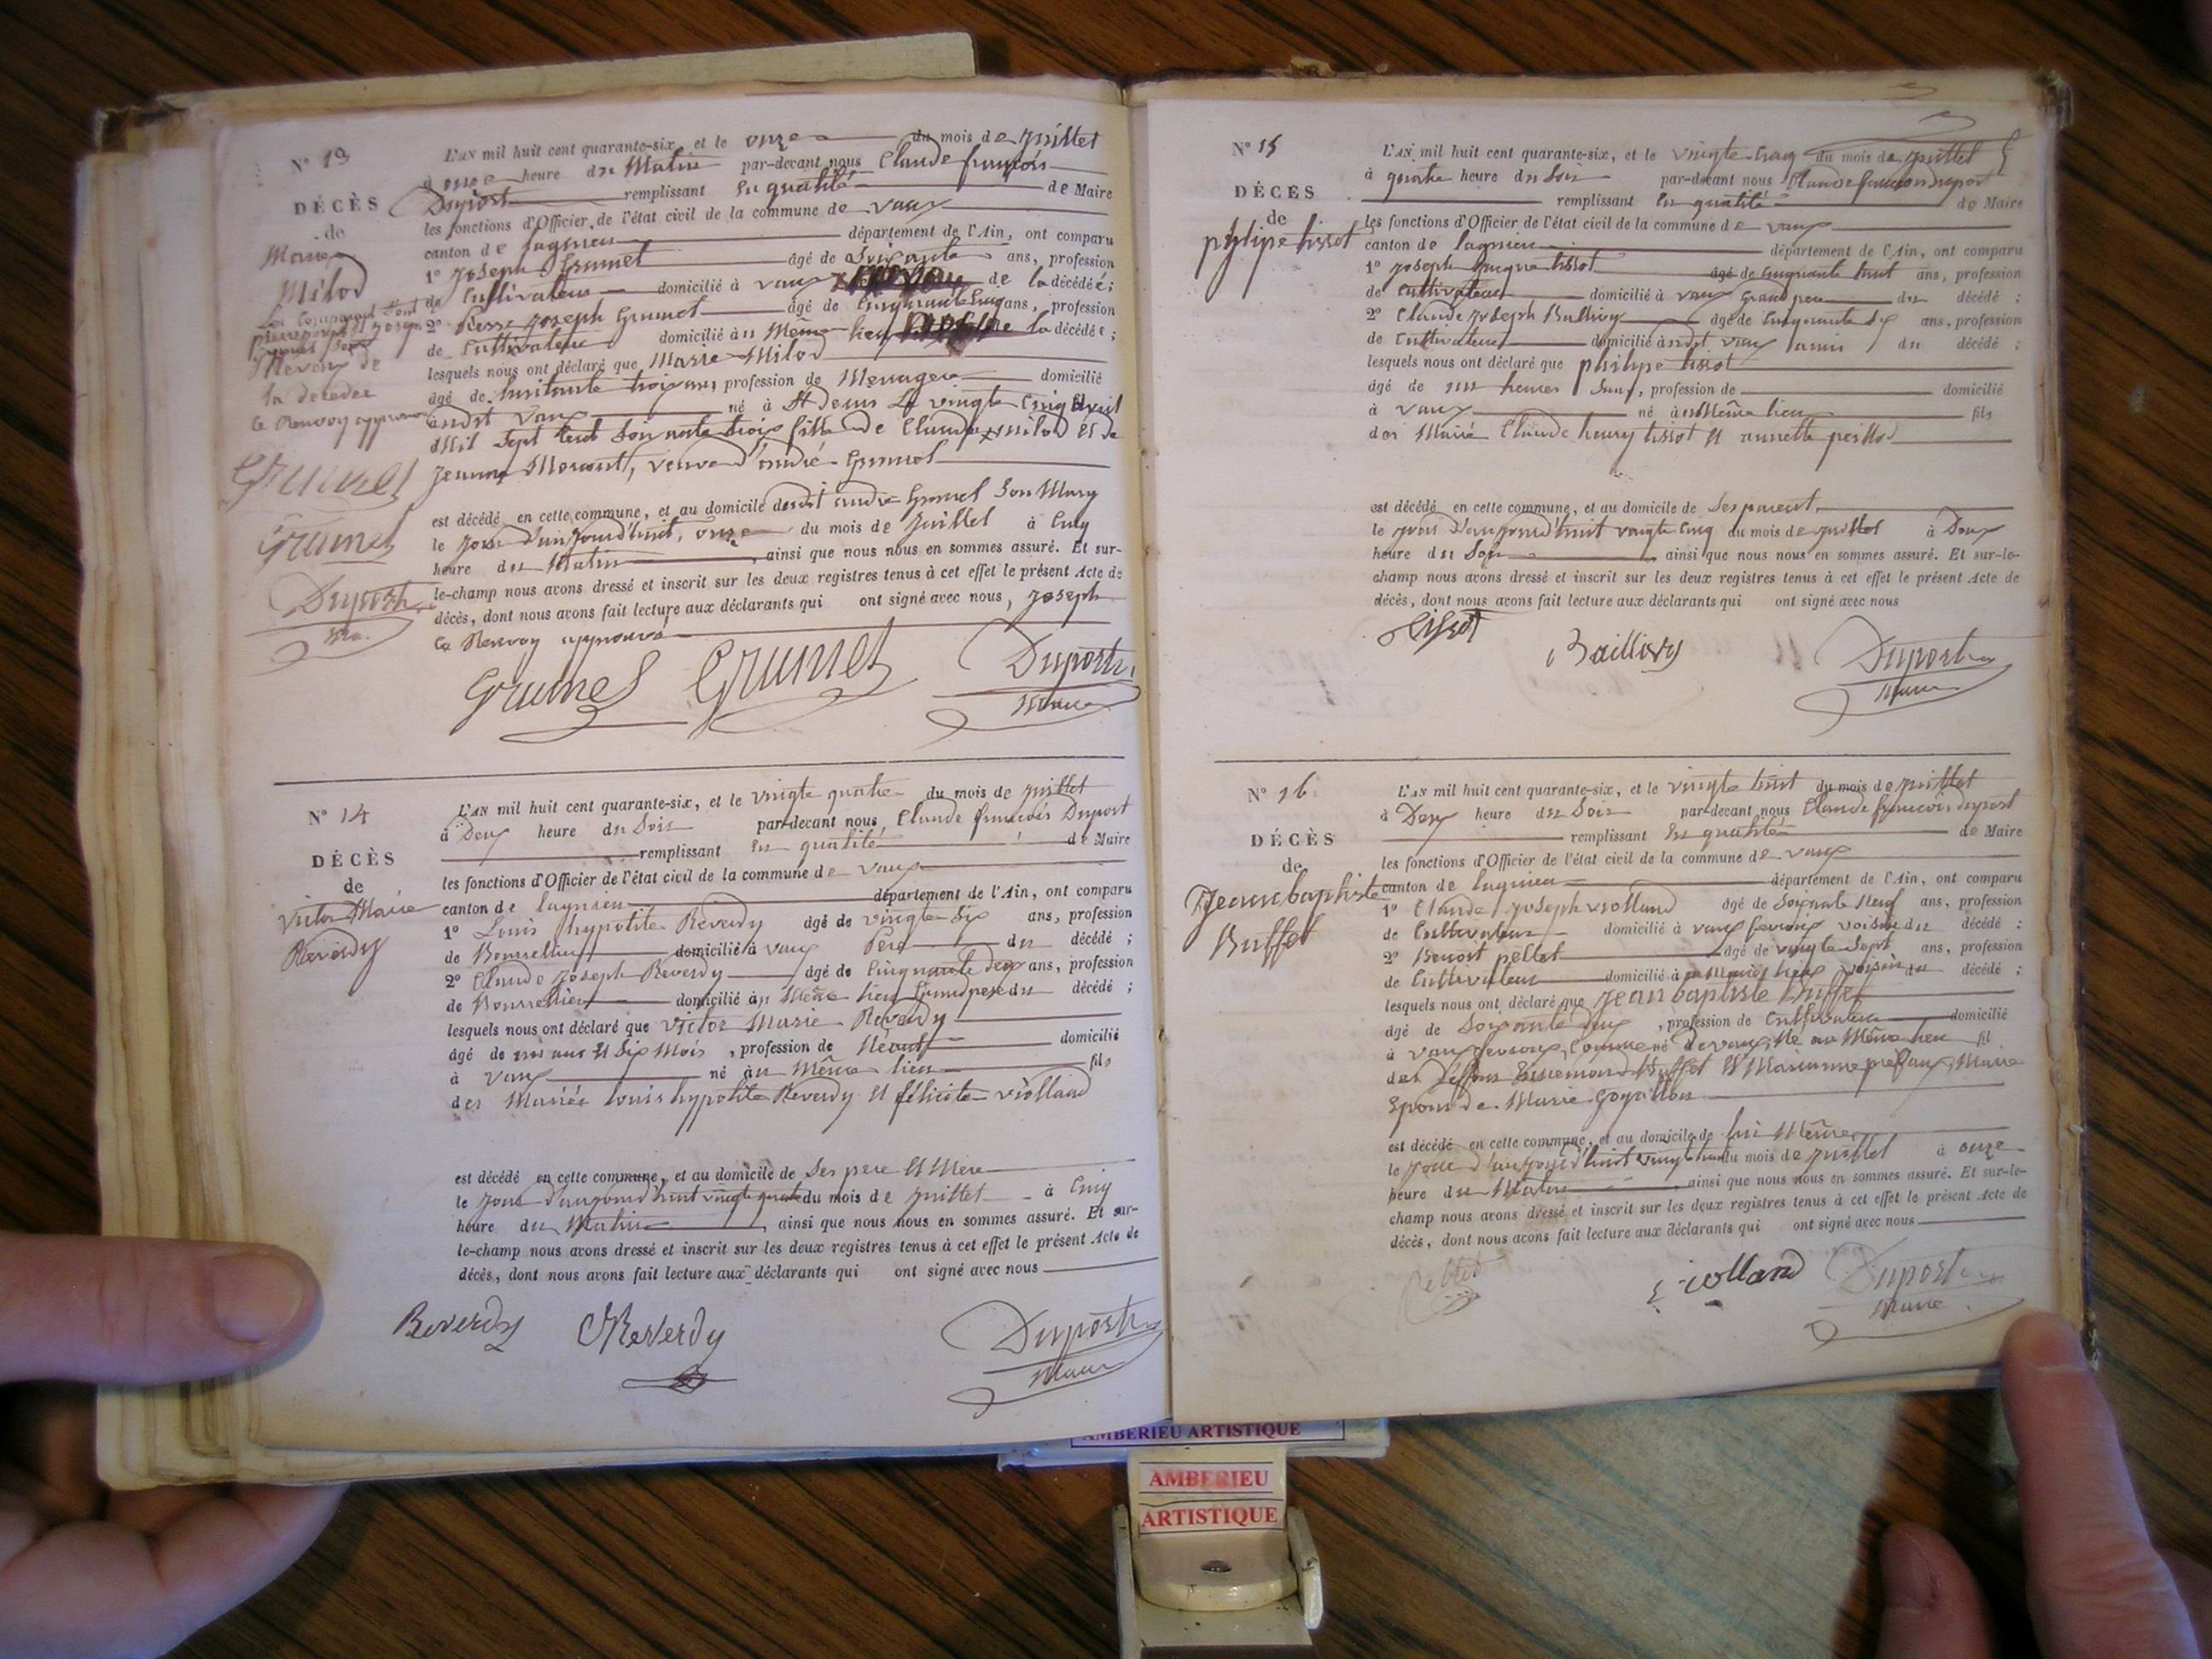 N° 13
DÉCÈS
de
Marie
Milod
Les comparant sont
pierre joseph et joseph
Grumel
Neveux de
la décédée
Le Renvoy approuvé
Grumel
Grumel
Duport
L'AN mil huit cent quarante-six, et le onze du mois de juillet
à onze heure du Matin par-devant nous Claude françois
Duport remplissant En qualité de Maire
les fonctions d'Officier de l'état civil de la commune de vaux
canton de lagnieu département de l'Ain, ont comparu
1° Joseph Grumel âgé de Soixante ans, profession
de Cultivateur domicilié à vaux de la décédée ;
2° Pierre Joseph Grumel âgé de Cinquante Cinq ans, profession
de Cultivateur domicilié au Même lieu la décédée ;
lesquels nous ont déclaré que Marie Milod
âgé de huitante trois ans, profession de Menagere domicilié
audit vaux né à St denis Le vingte Cinq avril
Mil Sept Cent Soixante trois fille de Claude milod et de
Jeanne Morant, veuve d'andré Grumel
est décédé en cette commune, et au domicile dudit andré Grumel Son Mary
le jour d'aujourd'huit, onze du mois de Juillet à Cinq
heure du Matin, ainsi que nous nous en sommes assuré. Et sur-
le-champ nous avons dressé et inscrit sur les deux registres tenus à cet effet le présent Acte de
décès, dont nous avons fait lecture aux déclarants qui ont signé avec nous, Joseph
Le Renvoy approuvé
Grumel Grumel Duport
Maire
N° 14
DÉCÈS
de
Victor Marie
Reverdy
L'AN mil huit cent quarante-six, et le vingte quatre du mois de juillet
à Deux heure du Soir par-devant nous Claude françois Duport
remplissant En qualité de Maire
les fonctions d'Officier de l'état civil de la commune de vaux
canton de lagnieu département de l'Ain, ont comparu
1° Louis hypolite Reverdy âgé de vingte Six ans, profession
de Bourrellier domicilié à vaux Père du décédé ;
2° Claude Joseph Reverdy âgé de Cinquante deux ans, profession
de Bourrellier domicilié au Même lieu Grand pere du décédé ;
lesquels nous ont déclaré que Victor Marie Reverdy
âgé de un ans et Six Mois, profession de Néant domicilié
à vaux né au Même lieu fils
des Mariés louis hypolite Reverdy et félicité violland
est décédé en cette commune, et au domicile de Ses pere et Mere
le jour d'aujourd'huit vingte quatre du mois de juillet à Cinq
heure du Matin, ainsi que nous nous en sommes assuré. Et sur-
le-champ nous avons dressé et inscrit sur les deux registres tenus à cet effet le présent Acte de
décès, dont nous avons fait lecture aux déclarants qui ont signé avec nous
Reverdy Reverdy Duport
Maire
N° 15
DÉCÈS
de
philipe tissot
L'AN mil huit cent quarante-six, et le vingte Cinq du mois de juillet
à quatre heure du Soir par-devant nous Claude francois duport
remplissant En qualité de Maire
les fonctions d'Officier de l'état civil de la commune de vaux
canton de lagnieu département de l'Ain, ont comparu
1° Joseph tissot âgé de Cinquante huit ans, profession
de Cultivateur domicilié à vaux Grand pere du décédé ;
2° Claude Joseph Baillivy âgé de Cinquante Six ans, profession
de Cultivateur domicilié audit vaux amis du décédé ;
lesquels nous ont déclaré que philipe tissot
âgé de une heures, profession de domicilié
à vaux né au Même lieu fils
des Mariés Claude henry tissot et annette peillod
est décédé en cette commune, et au domicile de Ses parent
le jour d'aujourd'huit vingte Cinq du mois de juillet à Deux
heure du Soir, ainsi que nous nous en sommes assuré. Et sur-le-
champ nous avons dressé et inscrit sur les deux registres tenus à cet effet le présent Acte de
décès, dont nous avons fait lecture aux déclarants qui ont signé avec nous
tissot Baillivy Duport
Maire
N° 16
DÉCÈS
de
Jean baptiste
Buffet
L'AN mil huit cent quarante-six, et le vingte huit du mois de juillet
à Deux heure du Soir par-devant nous Claude françois duport
remplissant En qualité de Maire
les fonctions d'Officier de l'état civil de la commune de vaux
canton de lagnieu département de l'Ain, ont comparu
1° Claude Joseph violland âgé de Soixante Neuf ans, profession
de Cultivateur domicilié à vaux fevroux voisin du décédé ;
2° Benoit pellet âgé de vingte Sept ans, profession
de Cultivateur domicilié à lieu voisin du décédé ;
lesquels nous ont déclaré que Jean baptiste Buffet
âgé de Soixante deux, profession de Cultivateur domicilié
à vaux fevroux, Commune de vaux, Né au Même lieu fil
des Buffet et Marianne
Epoux de Marie Goyallon
est décédé en cette commune, et au domicile de lui Même
le jour d'aujourd'huit vingte huit du mois de juillet à onze
heure du Matin, ainsi que nous nous en sommes assuré. Et sur-le-
champ nous avons dressé et inscrit sur les deux registres tenus à cet effet le présent Acte de
décès, dont nous avons fait lecture aux déclarants qui ont signé avec nous
Pellet violland Duport
Maire
AMBERIEU ARTISTIQUE
AMBERIEU
ARTISTIQUE